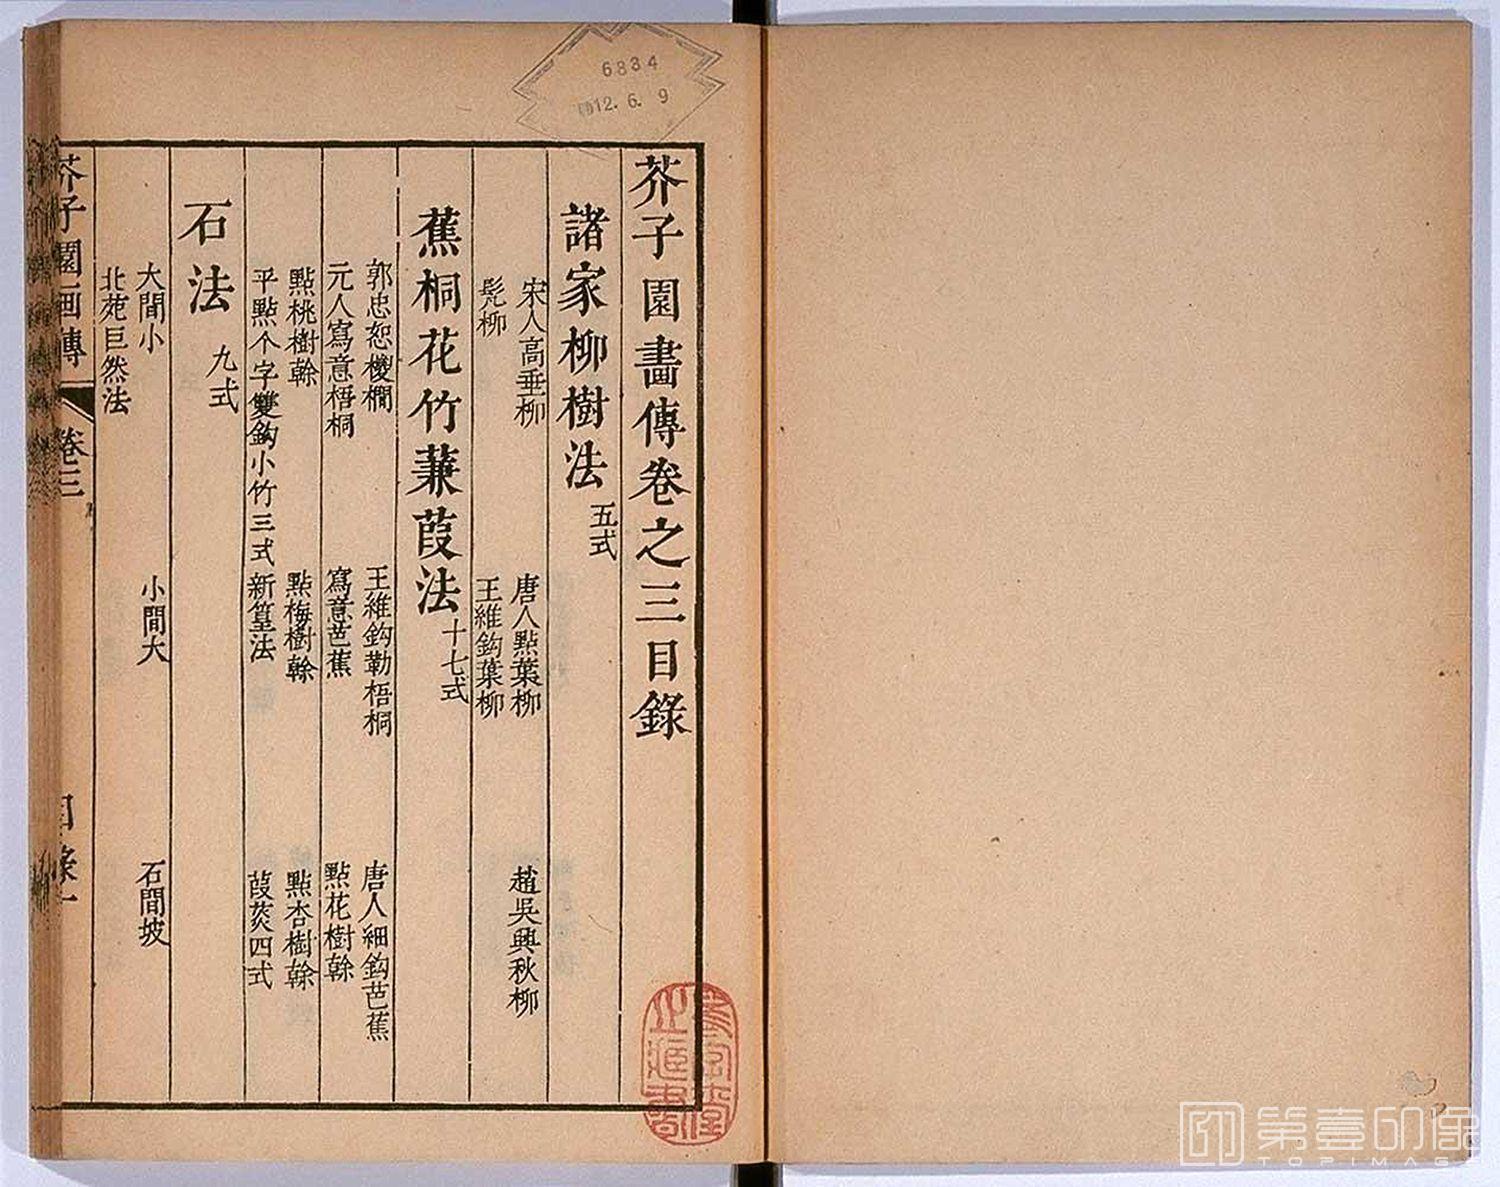 芥子園畫傳卷之三目錄
諸家柳樹法 五式
宋人高垂柳 唐人點葉柳 趙吳興秋柳
髡柳 王維鈎葉柳
蕉桐花竹蒹葭法 十七式
郭忠恕椶櫚 王維鈎勒梧桐 唐人細鈎芭蕉
元人寫意梧桐 寫意芭蕉 點花樹幹
點桃樹幹 點梅樹幹 點杏樹幹
平點个字雙鈎小竹三式 新篁法 葭菼四式
石法 九式
大間小 小間大 石間坡
北苑巨然法
芥子園画傳 卷三 目錄一
6834
12.6.9
第壹印像
TOPIMAGE